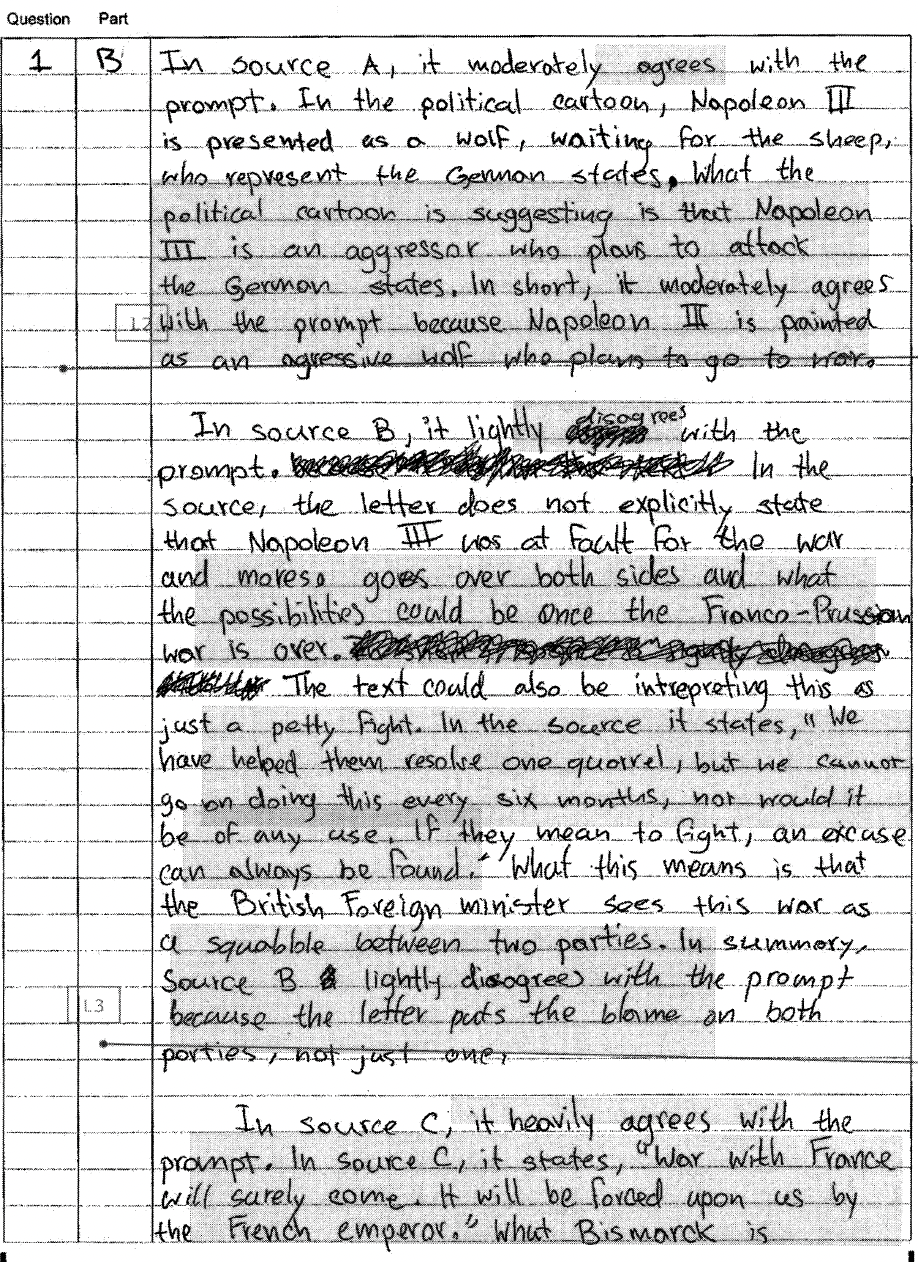 Question Part
1 B In source A, it moderately agrees with the
prompt. In the political cartoon, Napoleon III
is presented as a wolf, waiting for the sheep,
who represent the German states. What the
political cartoon is suggesting is that Napoleon
III is an aggressor who plans to attack
the German states. In short, it moderately agrees
L2 With the prompt because Napoleon III is painted
as an agressive wolf who plans to go to war.
In source B, it lightly disagrees with the
prompt. In the
source, the letter does not explicitly state
that Napoleon III was at fault for the war
and moreso goes over both sides and what
the possibilities could be once the Franco-Prussian
war is over.
The text could also be intrepreting this as
just a petty fight. In the source it states, "We
have helped them resolve one quarrel, but we cannot
go on doing this every six months, nor would it
be of any use. If they mean to fight, an excuse
can always be found." What this means is that
the British Foreign minister sees this war as
a squabble between two parties. In summary,
Source B lightly disagrees with the prompt
L3 because the letter puts the blame on both
parties, not just one.
In source C, it heavily agrees with the
prompt. In source C, it states, "War with France
will surely come. It will be forced upon us by
the French emperor." What Bismarck is